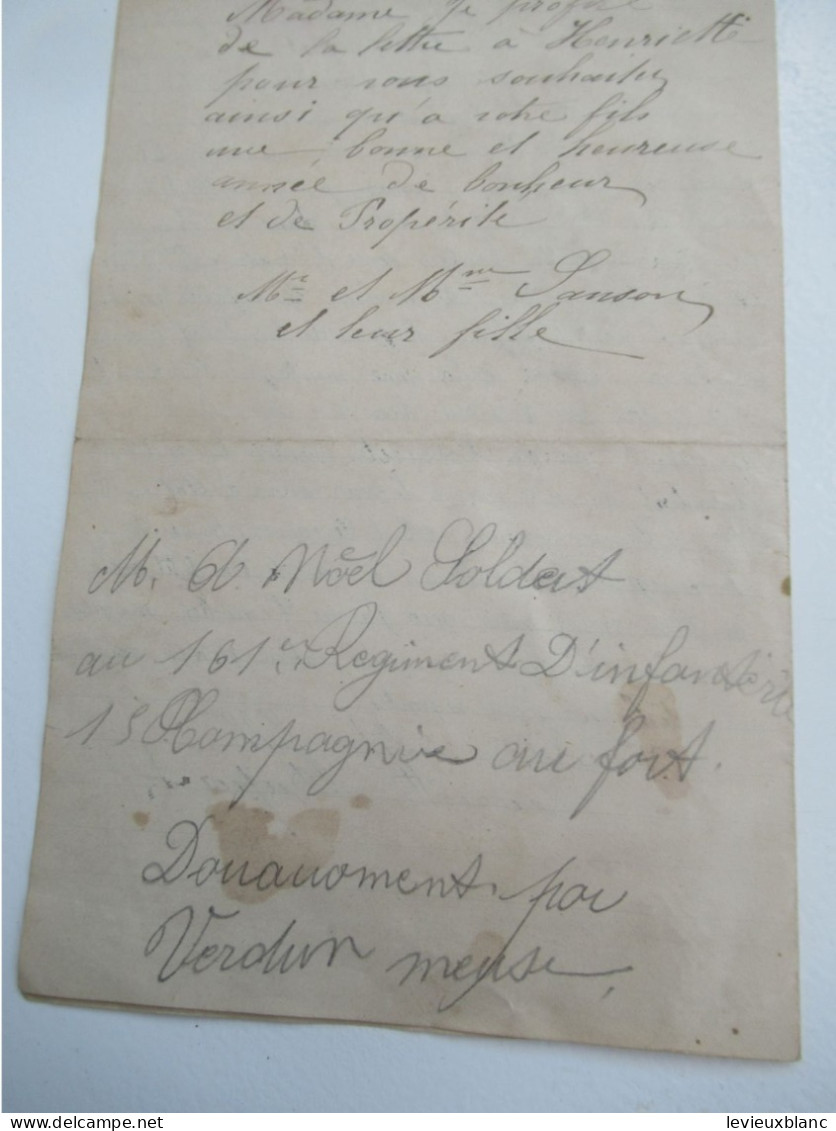 Madame je profite
de la lettre à Henriette
pour vous souhaiter
ainsi qu'a votre fils
une bonne et heureuse
année de bonheur
et de Propérité
Mr et Mme Sanson
et leur fille
M. A. Noël Soldat
au 161e Regiment D'infanterie
15 Compagnie au fort
Douauoment par
Verdun meuse
levieuxblanc